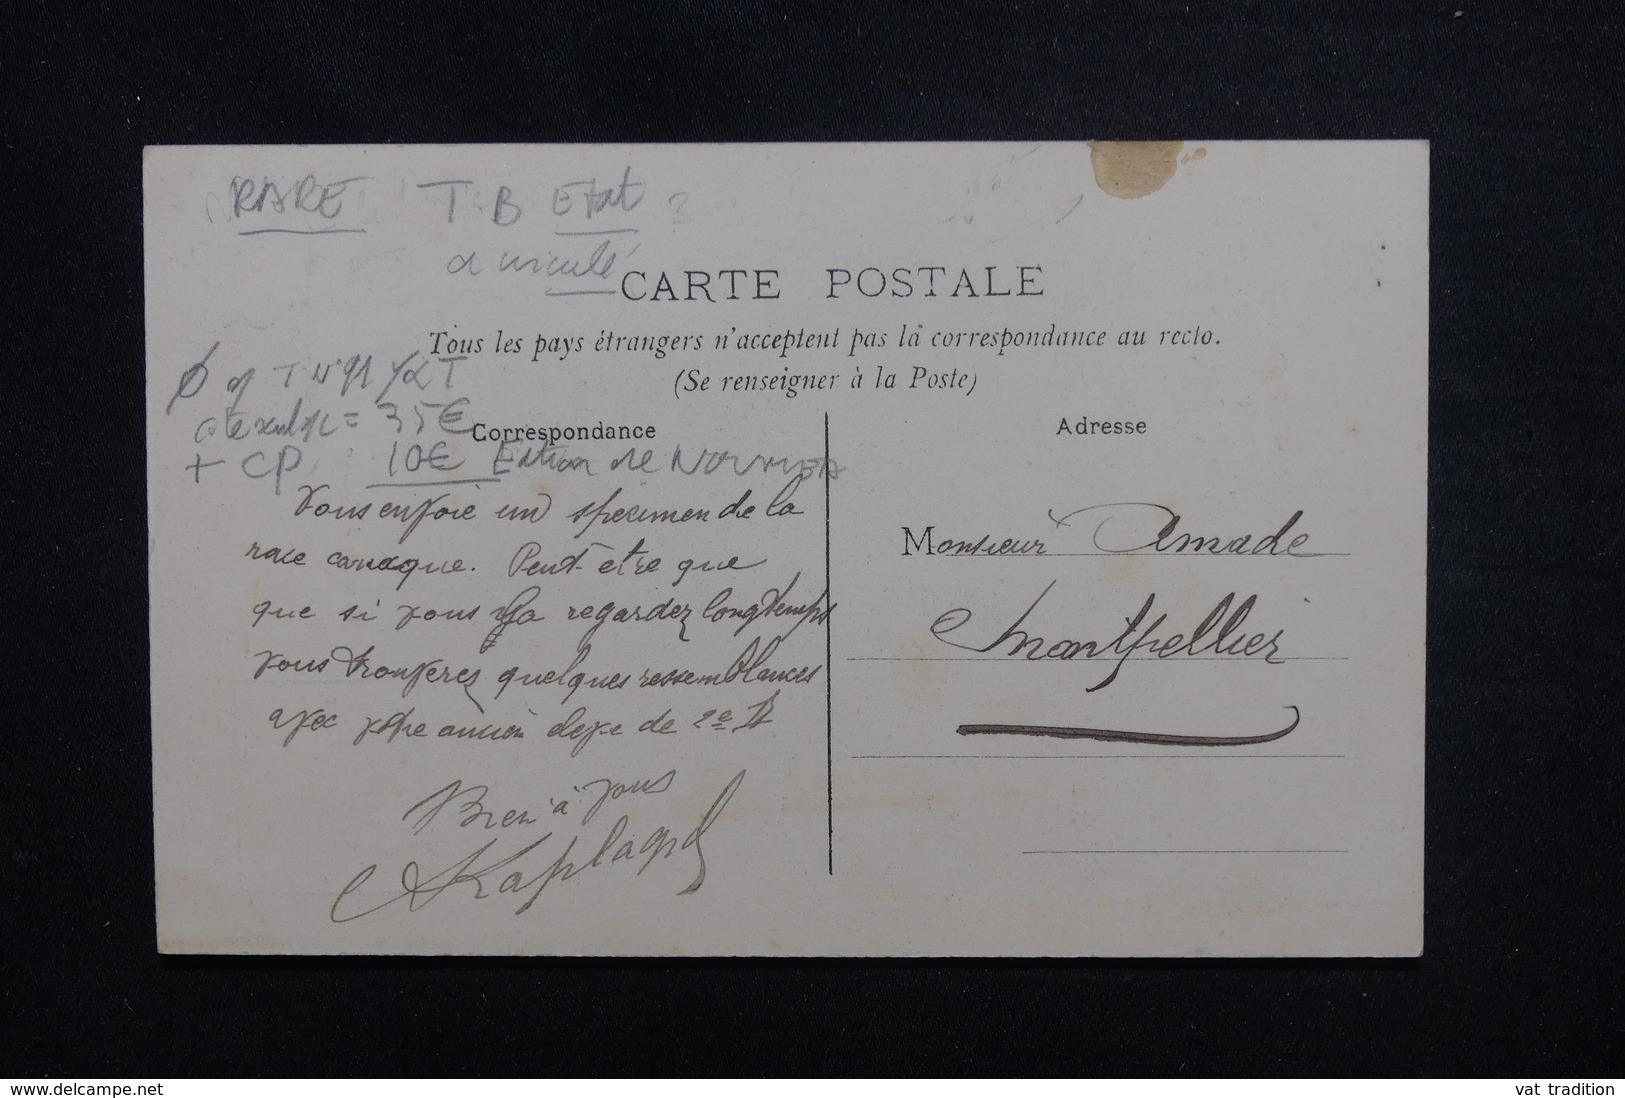 RARE T.B Etat
CARTE POSTALE
Tous les pays étrangers n'acceptent pas la correspondance au recto.
(Se renseigner à la Poste)
T N° 91 Y&T
= 35€
Correspondance
Adresse
+ CP 10€ Edition de
Vous envoie un specimen de la
race canaque. Peut-etre que
que si vous la regardez longtemps
vous trouverez quelques ressemblances
avec votre ancien de 2e
Bien à vous
Monsieur Amade
Montpellier
www.delcampe.net
vat_tradition